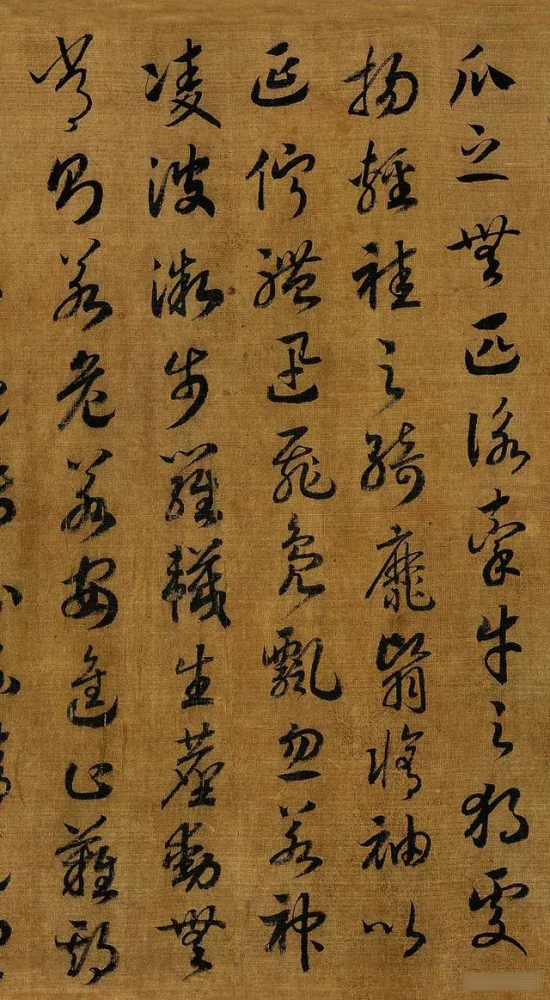 瓜之無匹詠牽牛之獨處
揚輕袿之綺靡翳脩袖以
延佇體迅飛鳧飄忽若神
凌波微步羅韈生塵動無
常則若危若安進止難期